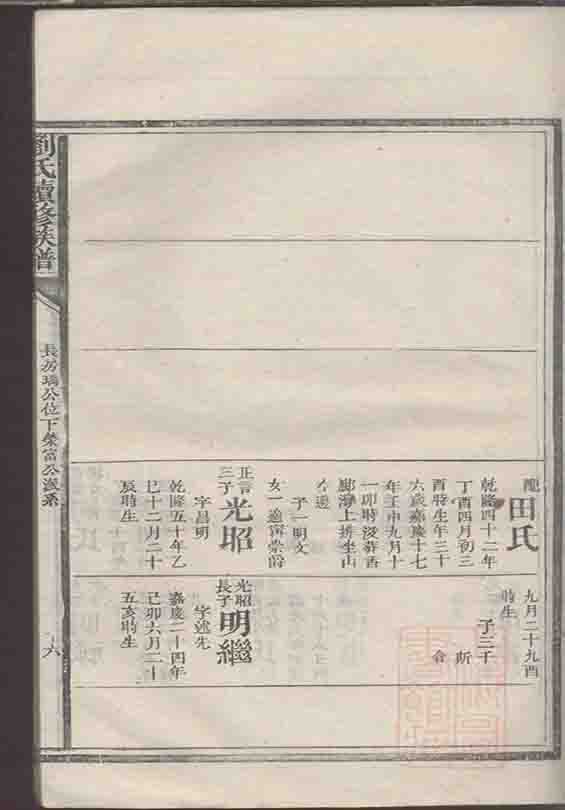 劉氏續修族譜
長房瑀公位下榮富公派系
六
配
田氏
乾隆四十二年
丁酉四月初三
酉時生年三十
六歲嘉慶十七
年壬申九月十
一卯時沒葬香
山
子一明文
女一適甯崇爵
正言
三子
光昭
字昌明
乾隆五十年乙
巳十二月二十
辰時生
九月二十九酉
時生
子三千
所
令
光昭
長子
明繼
字述先
嘉慶二十四年
己卯六月二十
五亥時生